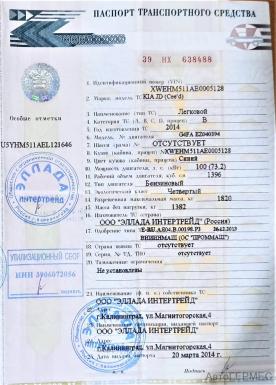 ПАСПОРТ ТРАНСПОРТНОГО СРЕДСТВА
39 НХ 638488
1. Идентификационный номер (VIN) XWEHM511AE0005128
2. Марка, модель ТС KIA JD (Cee'd)
3. Наименование (тип ТС) Легковой
4. Категория ТС (А, В, С, D, прицеп) B
5. Год изготовления ТС 2014
6. Модель, № двигателя G4FA
7. Шасси (рама) № ОТСУТСТВУЕТ
8. Кузов (кабина, прицеп) № XWEHM511AE0005128
9. Цвет кузова (кабины, прицепа) Синий
10. Мощность двигателя, л. с. (кВт) 100 (73.2)
11. Рабочий объем двигателя, куб. см 1396
12. Тип двигателя Бензиновый
13. Экологический класс Четвертый
14. Разрешенная максимальная масса, кг 1820
15. Масса без нагрузки, кг 1382
16. Изготовитель ТС (страна)
ООО "ЭЛЛАДА ИНТЕРТРЕЙД" (Россия)
17. Одобрение типа ТС № 26.12.2013
18. Страна вывоза ТС отсутствует
19. Серия, № ТД, ТПО отсутствует
20. Таможенные ограничения
Не установлены
Особые отметки
ЭЛЛАДА
интертрейд
УТИЛИЗАЦИОННЫЙ СБОР
ИНН 3906072056
ООО "ЭЛЛАДА ИНТЕРТРЕЙД"
22. Адрес
г.Калининград, ул.Магнитогорская,4
ООО "ЭЛЛАДА ИНТЕРТРЕЙД"
24. Адрес
г.Калининград, ул.Магнитогорская,4
25. Дата выдачи паспорта 20 марта 2014 г.
Подпись